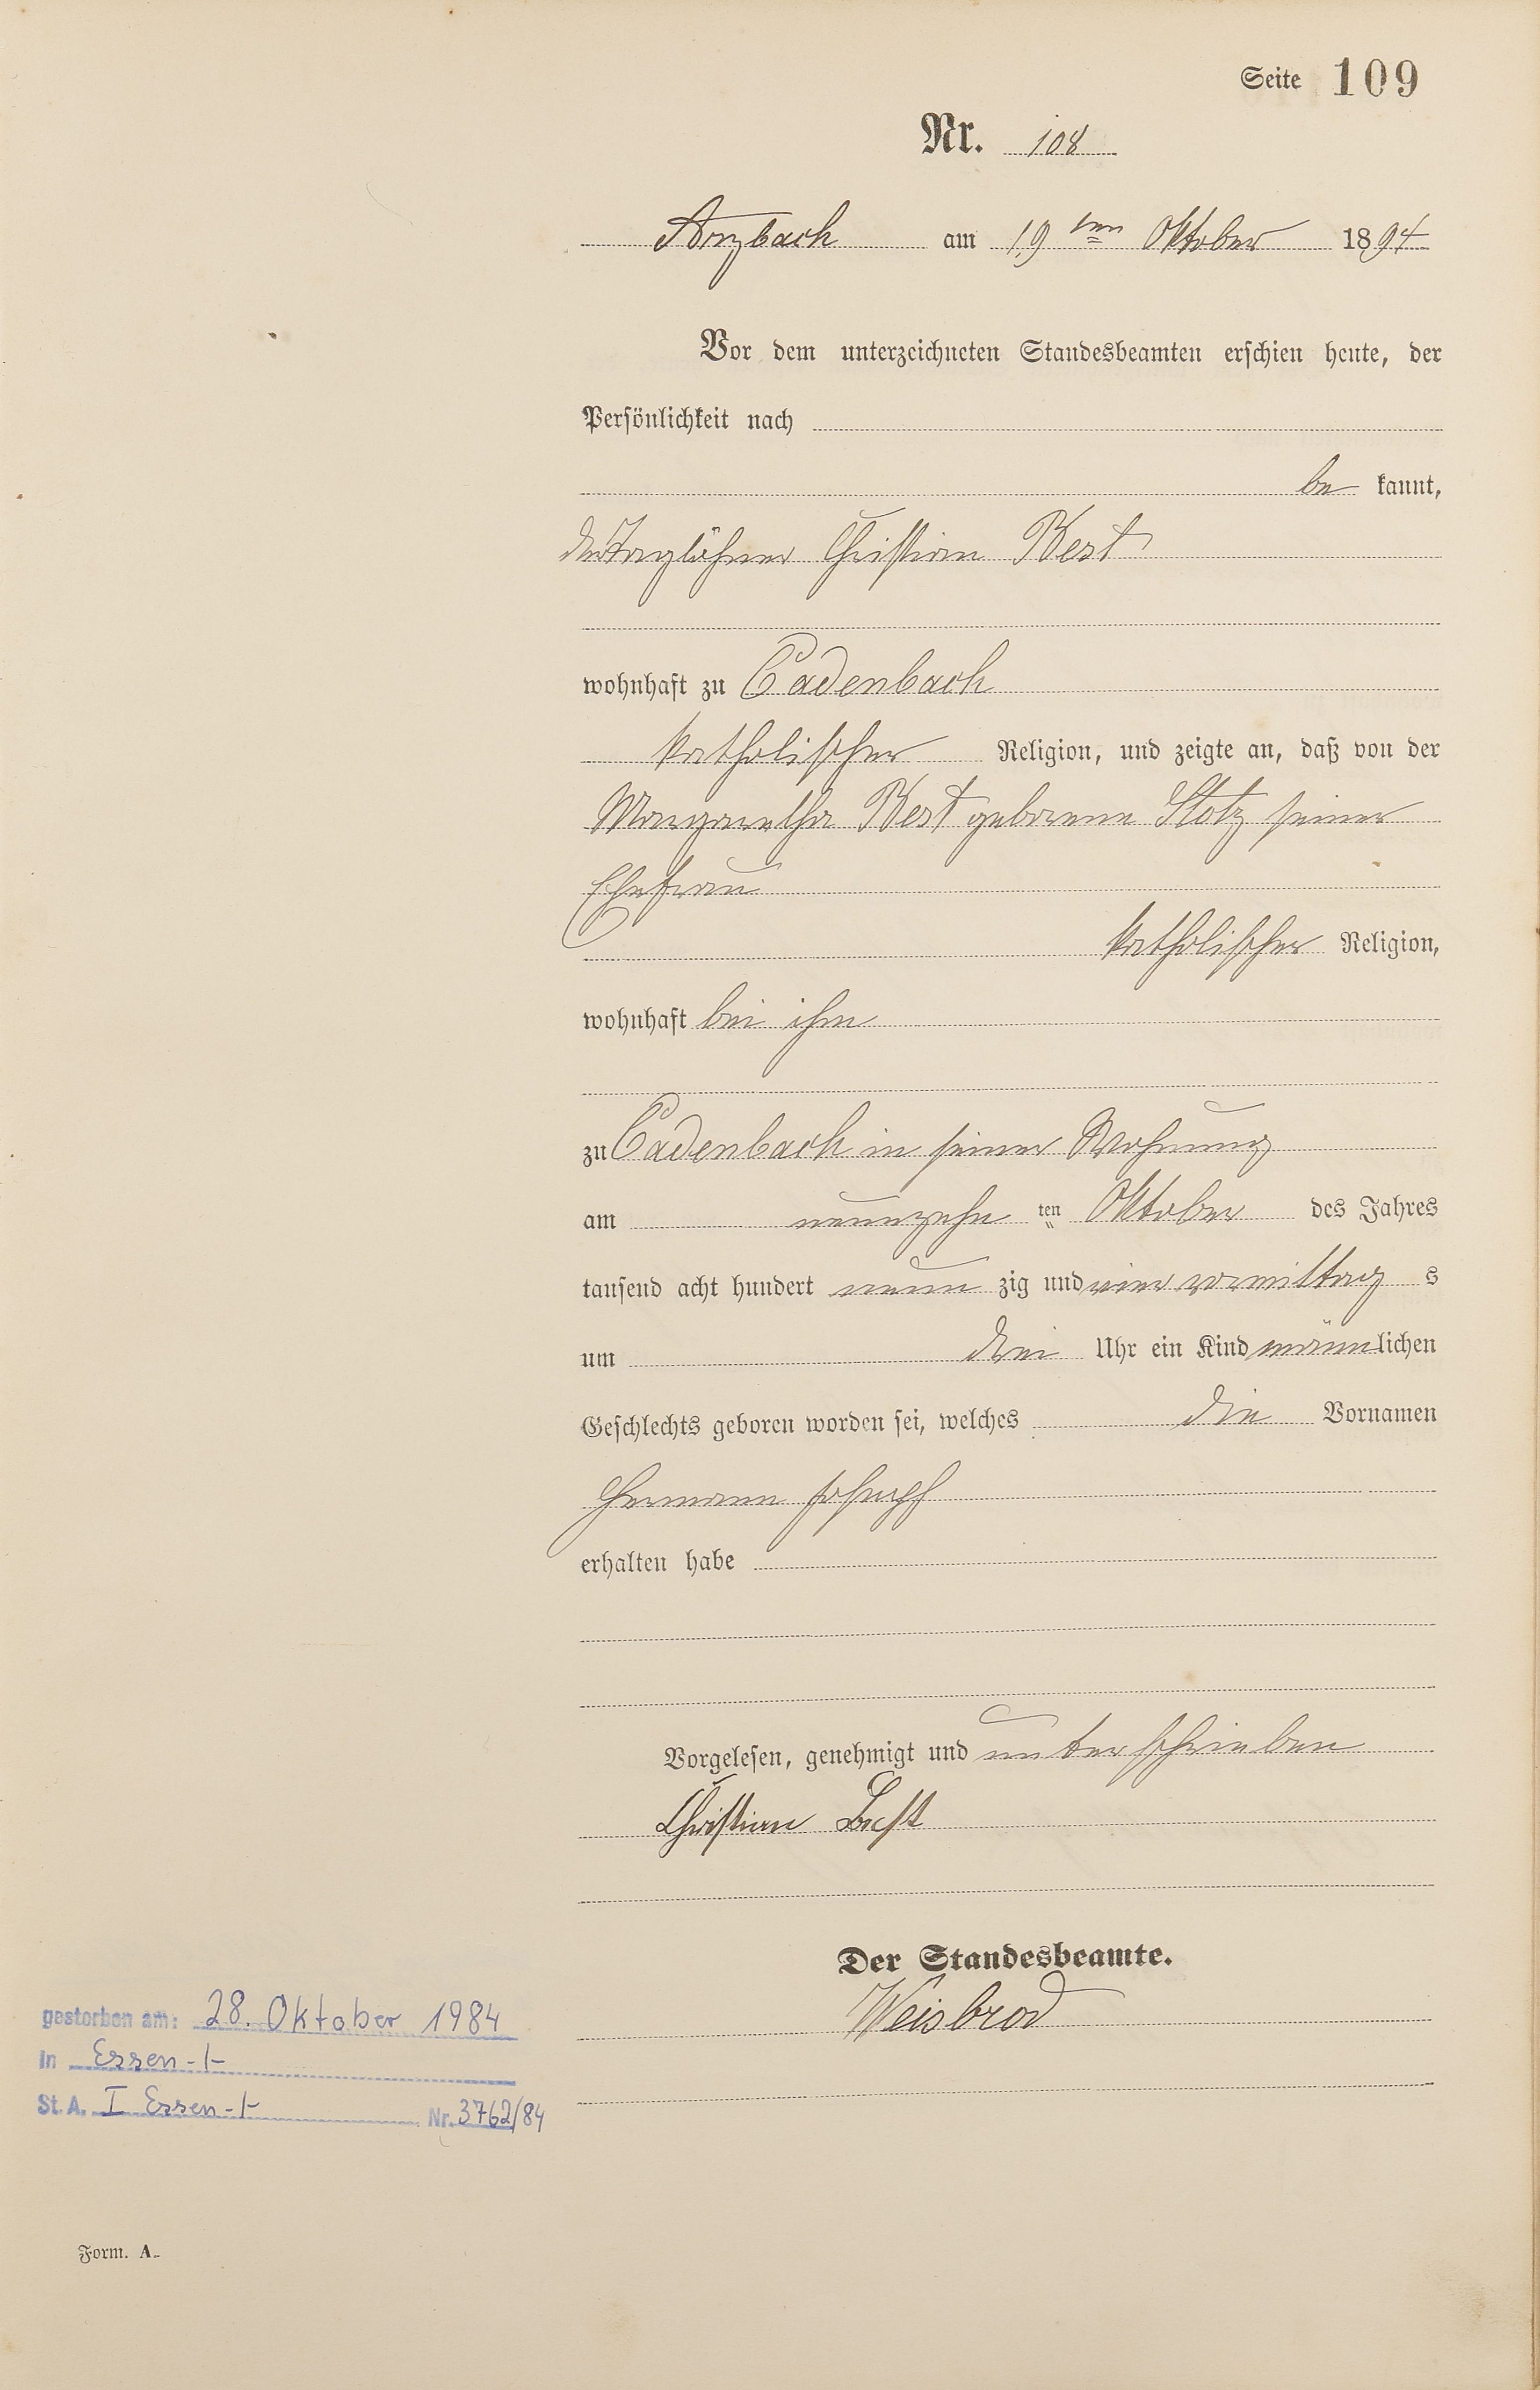 Seite 109
Nr. 108
Arzbach am 19ten Oktober 1894
Vor dem unterzeichneten Standesbeamten erschien heute, der
Persönlichkeit nach
be kannt,
der Taglöhner Christian Best
wohnhaft zu Cadenbach
katholischer Religion, und zeigte an, daß von der
Margaretha Best geborene Stotz seiner
Ehefrau
katholischer Religion,
wohnhaft bei ihm
zu Cadenbach in seiner Wohnung
am neunzehn ten Oktober des Jahres
tausend acht hundert neun zig und vier vormittag s
um drei Uhr ein Kind männlichen
Geschlechts geboren worden sei, welches die Vornamen
Hermann Joseph
erhalten habe
Vorgelesen, genehmigt und unterschrieben
Christian Best
Der Standesbeamte.
Weisbrod
gestorben am: 28. Oktober 1984
in Essen -/-
St. A. I Essen -/- Nr. 3762/84
Form. A.